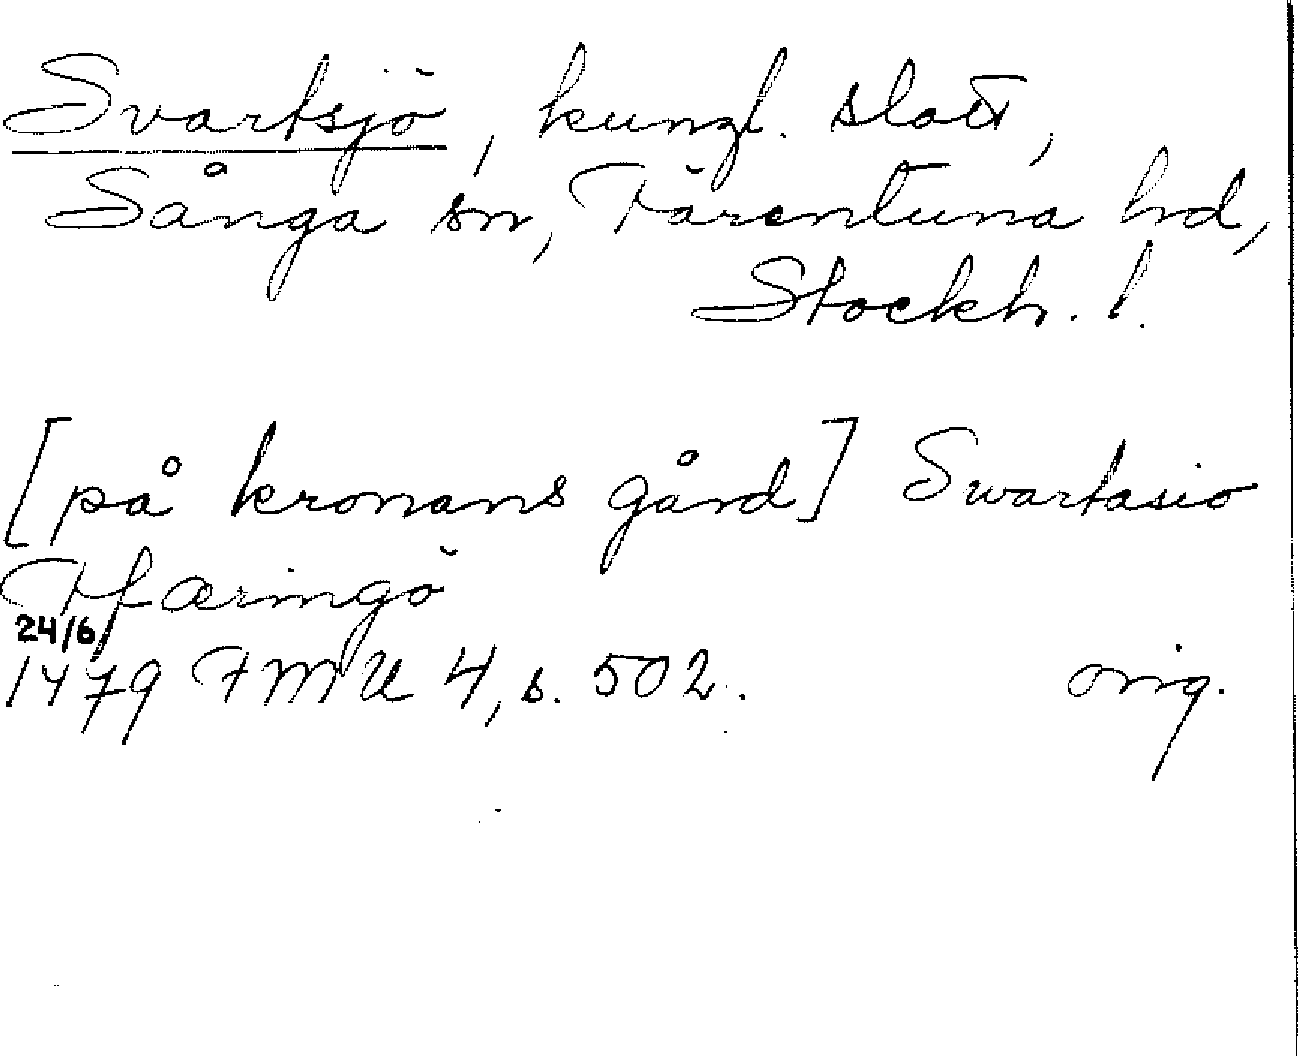 Svartsjö, kungl. slott,
Sånga sn, Färentuna hd,
Stockh. l.
[på kronans gård] Swartasio
Ffæringö
24/6
1479 FMU 4, s. 502.
orig.